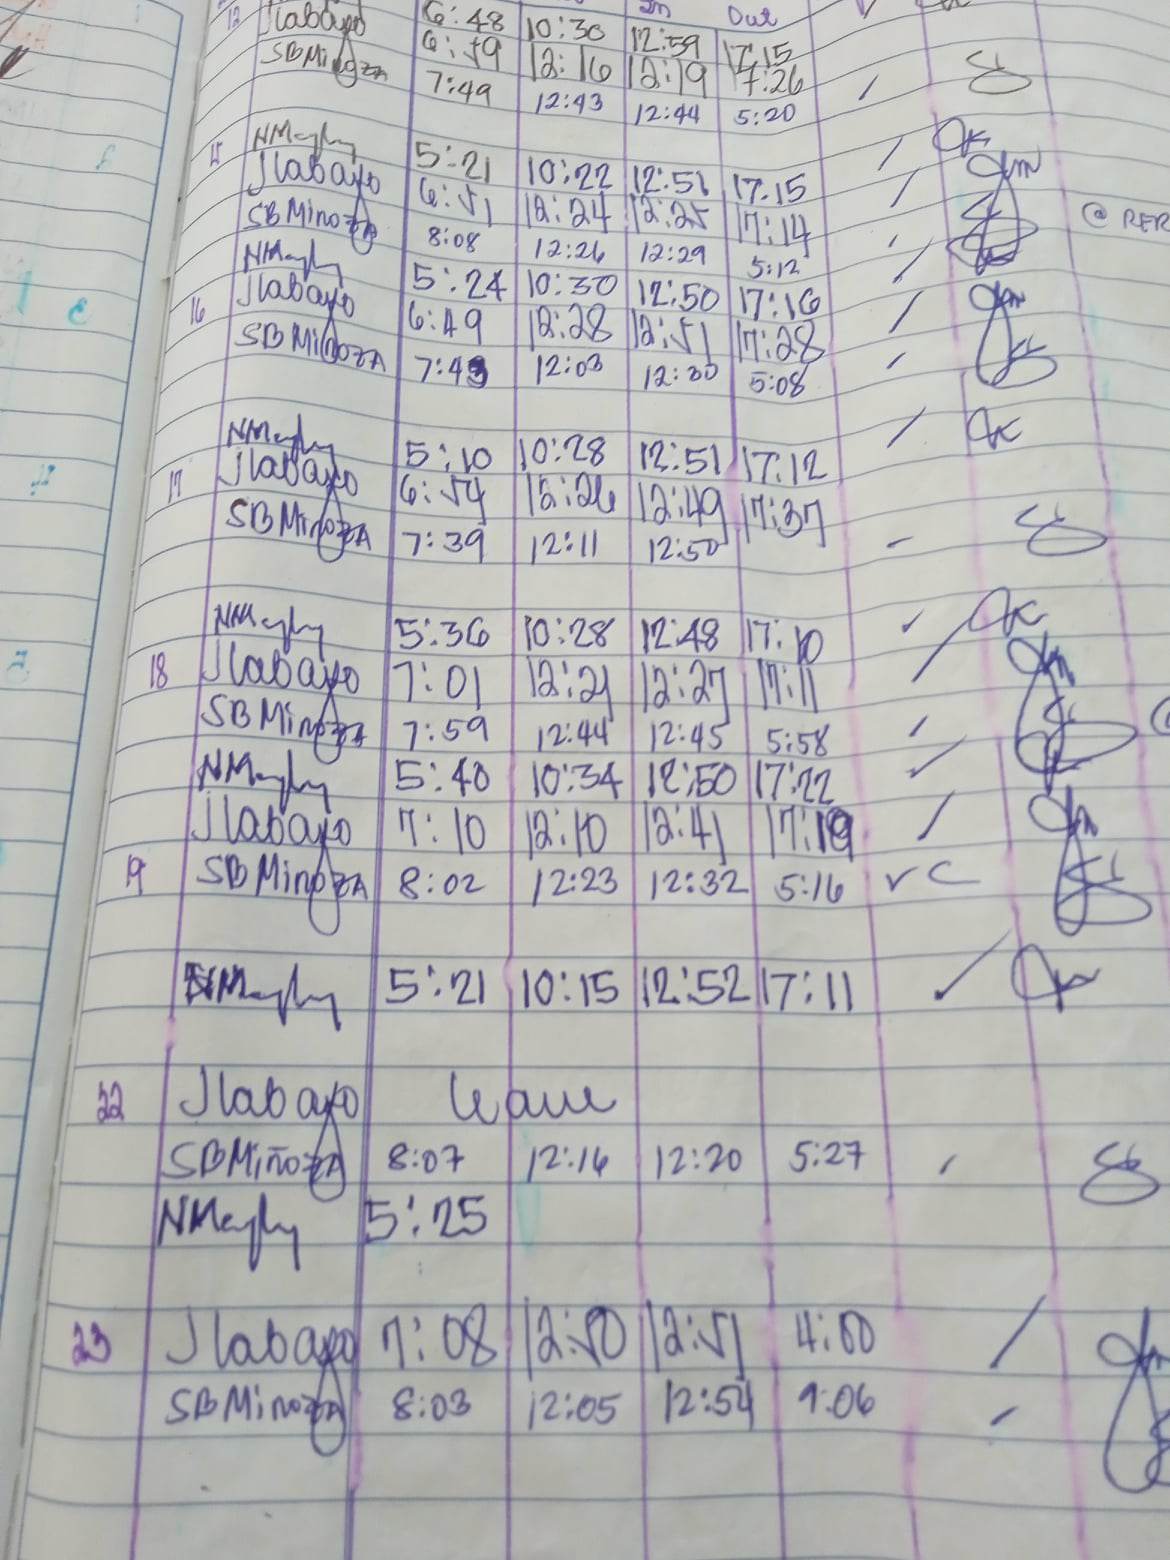 In Out
12 Jlabayo 6:48 10:30 12:59 17:15
SBMinoza 6:59 12:16 12:19 17:26
7:49 12:43 12:44 5:20
5:21 10:22 12:51 17.15
15 Jlabayo 6:51 12:24 12:25 17:14
SBMinoza 8:08 12:26 12:29 5:12
5:24 10:30 12:50 17:16
16 Jlabayo 6:49 12:28 12:51 17:28
SBMinoza 7:43 12:03 12:30 5:08
5:10 10:28 12:51 17:12
17 Jlabayo 6:54 12:26 12:49 17:37
SBMinoza 7:39 12:11 12:50
5:36 10:28 12:48 17:10
18 Jlabayo 7:01 12:21 12:27 17:11
SBMinoza 7:59 12:44 12:45 5:58
5:40 10:34 12:50 17:22
Jlabayo 7:10 12:10 12:41 17:19
19 SBMinoza 8:02 12:23 12:32 5:16
5:21 10:15 12:52 17:11
22 Jlabayo leave
SBMiñoza 8:07 12:16 12:20 5:27
5:25
23 Jlabayo 7:08 12:50 12:51 4:00
SBMinoza 8:03 12:05 12:54 9:06